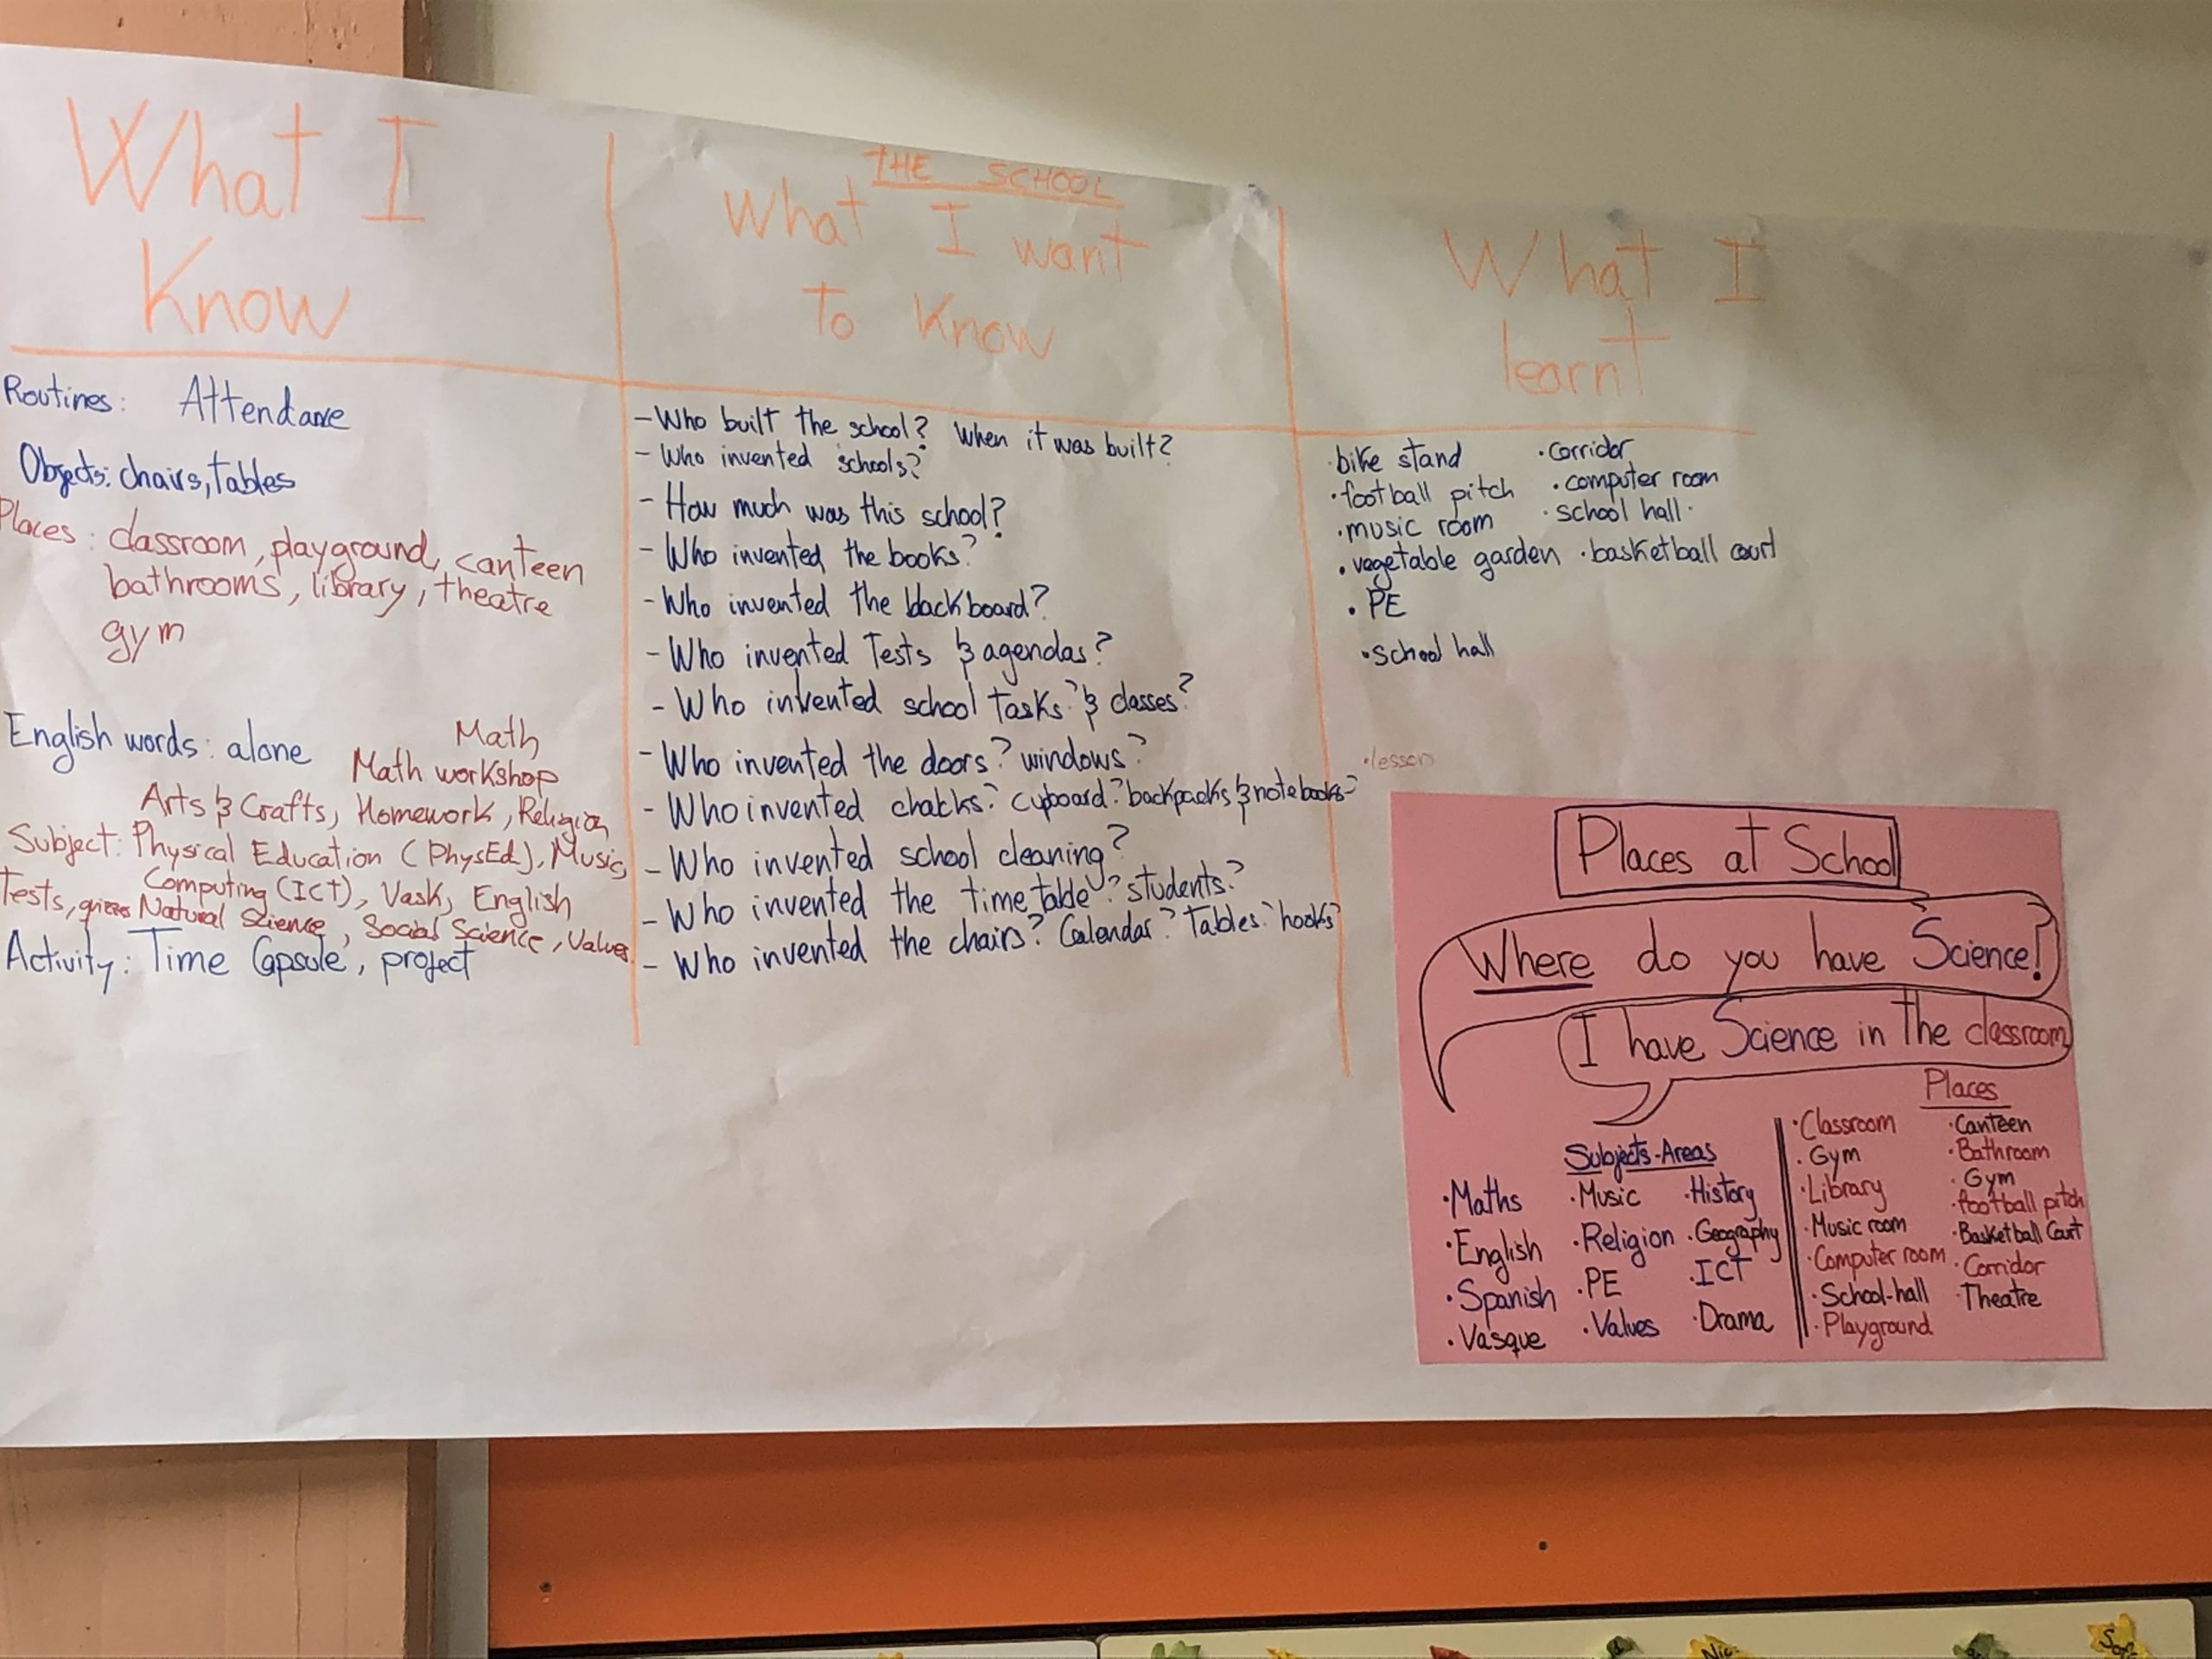 What I
Know
Routines: Attendance
Objects: chairs, tables
Places: classroom, playground, canteen
bathrooms, library, theatre
gym
English words: alone
Math
Math workshop
Arts & Crafts, Homework, Religion
Subject: Physical Education (PhysEd), Music,
Computing (ICT), Vask, English
Tests, Natural Science, Social Science, Values
Activity: Time Capsule, project
THE SCHOOL
What I want
To Know
- Who built the school? When it was built?
- Who invented schools?
- How much was this school?
- Who invented the books?
- Who invented the blackboard?
- Who invented Tests & agendas?
- Who invented school tasks? & classes?
- Who invented the doors? windows?
- Who invented chalks? cupboard? backpacks & notebooks?
- Who invented school cleaning?
- Who invented the timetable? students?
- Who invented the chairs? Calendar? Tables? hooks?
What I
learnt
· bike stand · corridor
· football pitch · computer room
· music room · school hall
· vegetable garden · basketball court
· PE
· school hall
· lesson
Places at School
Where do you have Science?
I have Science in the classroom
Subjects-Areas
· Maths · Music · History
· English · Religion · Geography
· Spanish · PE · ICT
· Vasque · Values · Drama
Places
· Classroom · Canteen
· Gym · Bathroom
· Library · Gym
· Music room · football pitch
· Computer room · Basketball Court
· School-hall · Corridor
· Playground · Theatre